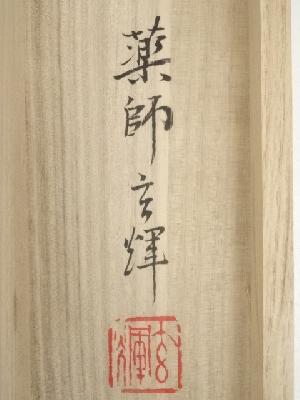 薬師玄輝
玄輝